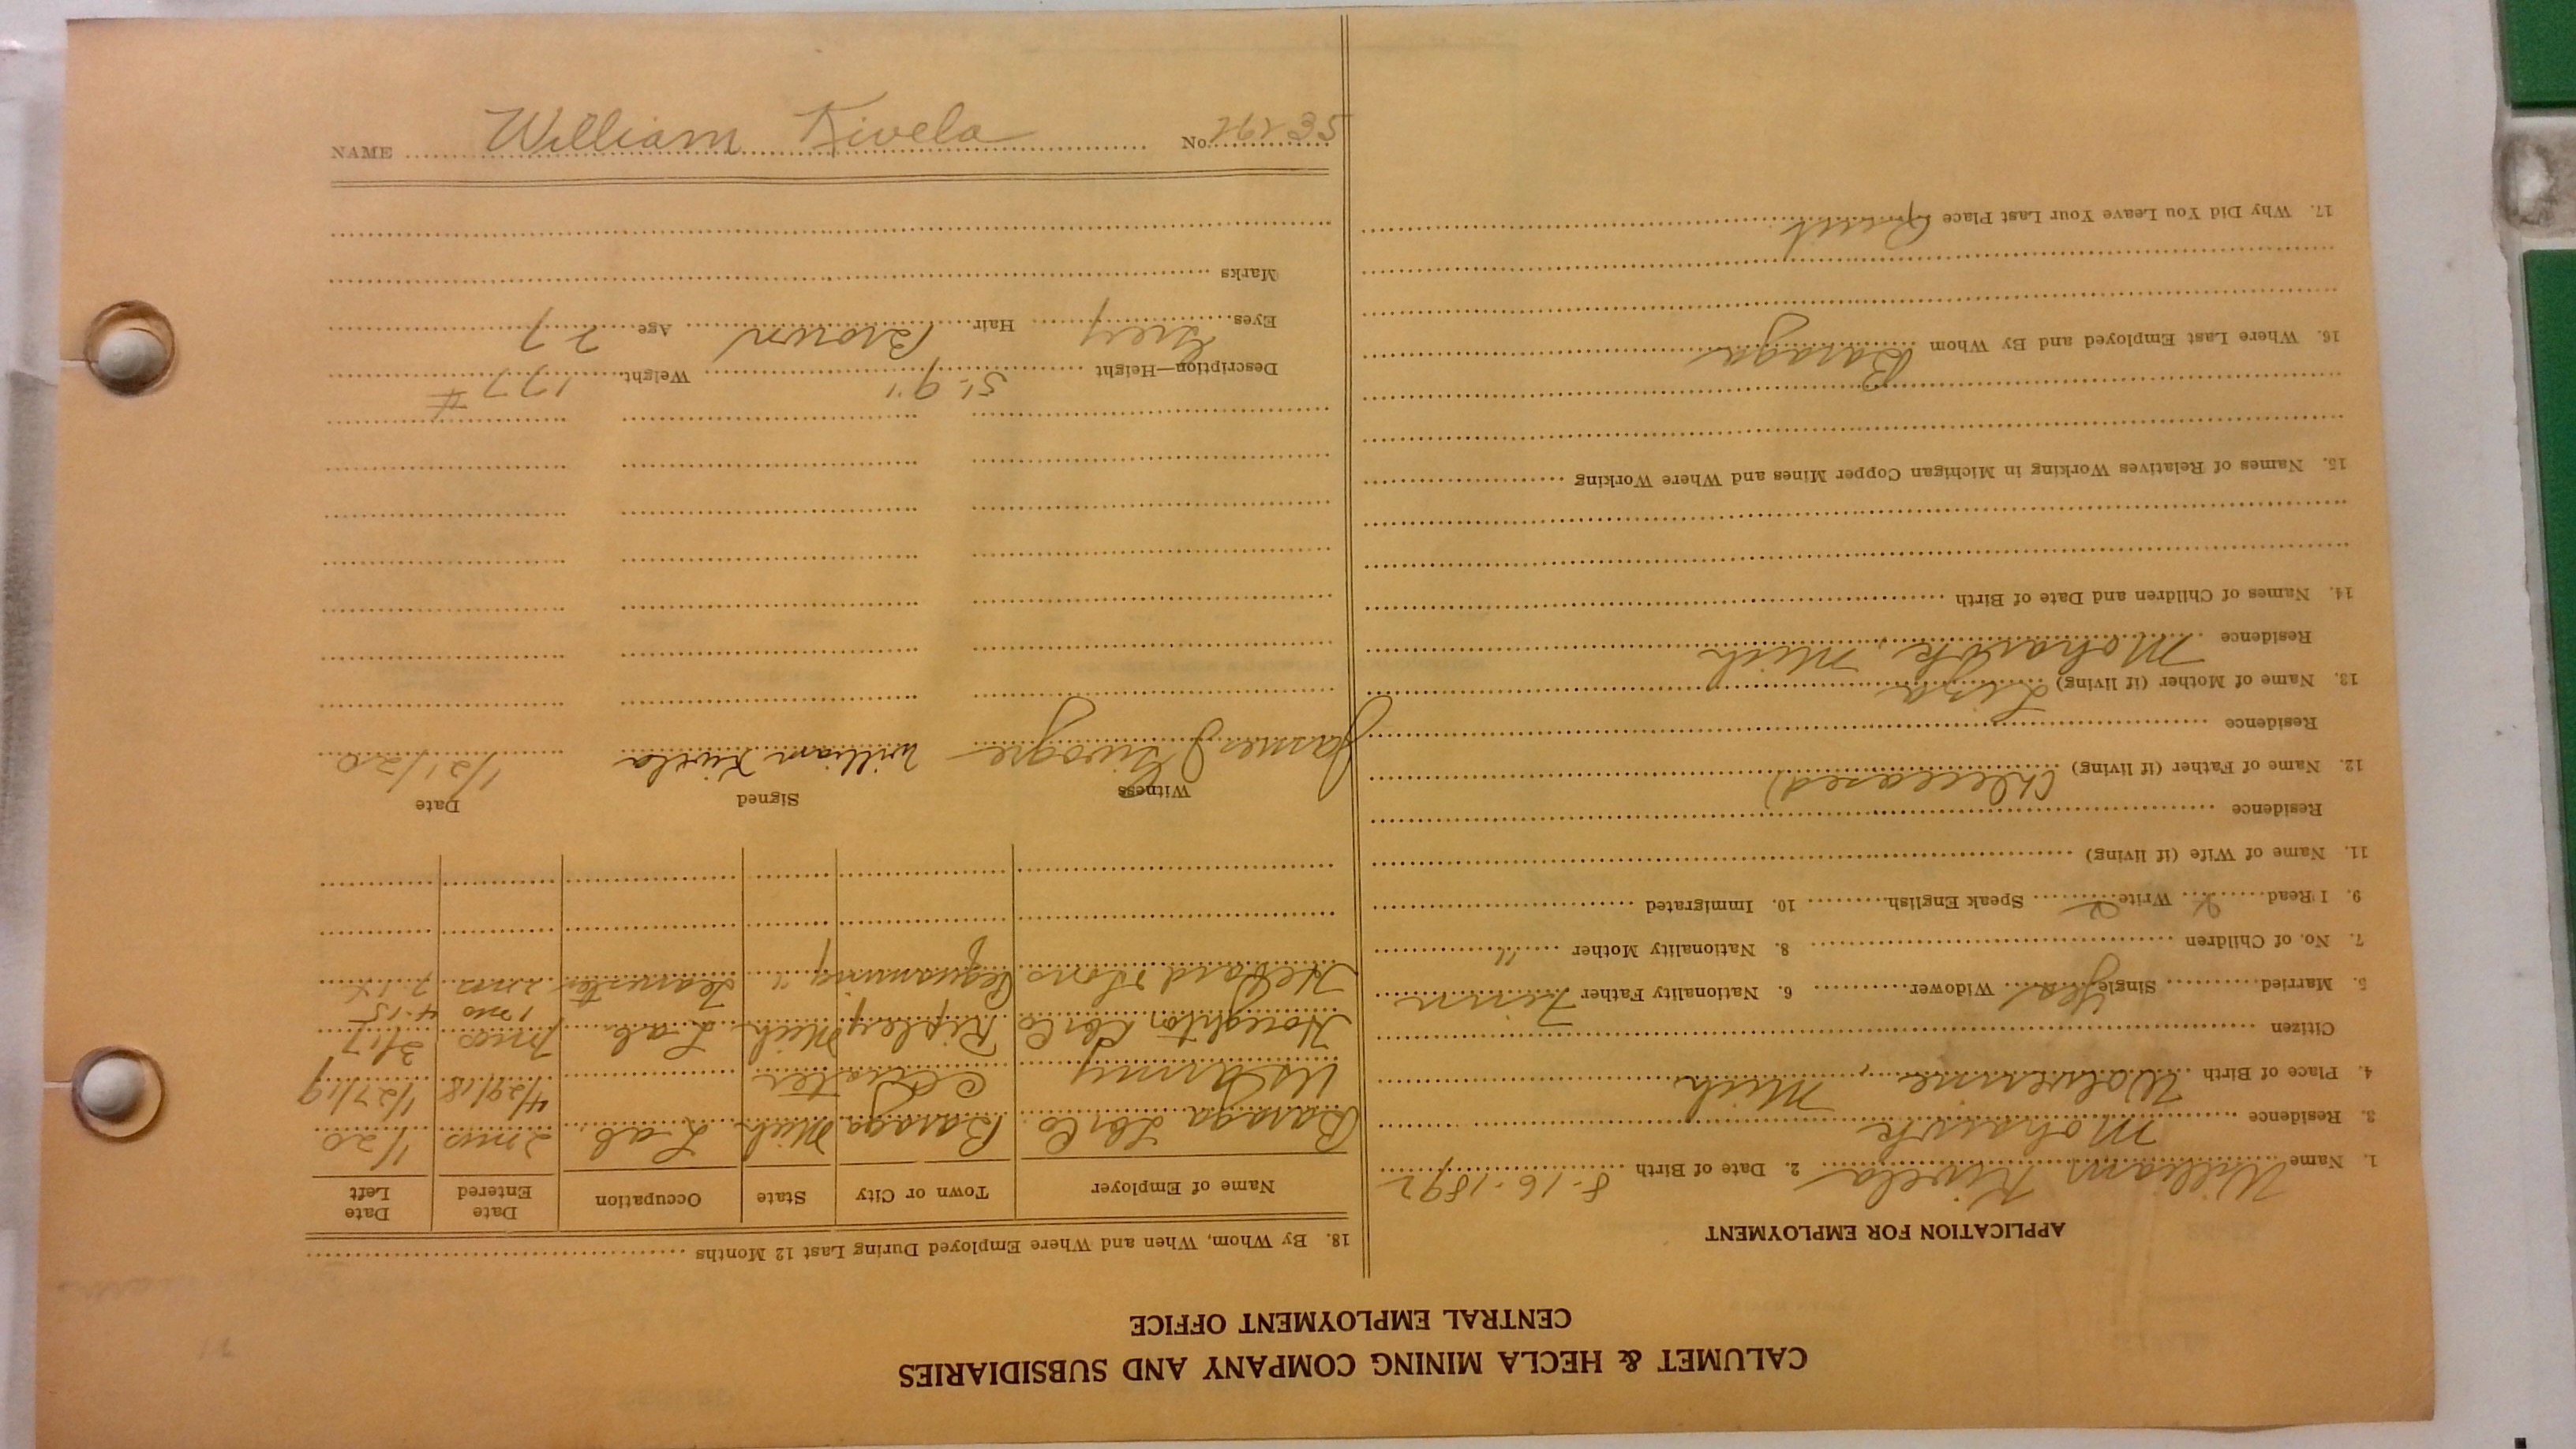 CALUMET & HECLA MINING COMPANY AND SUBSIDIARIES
CENTRAL EMPLOYMENT OFFICE
APPLICATION FOR EMPLOYMENT
1. Name William Kivela 2. Date of Birth 8-16-1892
3. Residence Mohawk
4. Place of Birth Wolverine, Mich
Citizen
5. Married Single Yes Widower 6. Nationality Father Finn
7. No. of Children 8. Nationality Mother "
9. I Read Write Speak English 10. Immigrated
11. Name of Wife (if living)
Residence
12. Name of Father (if living) (Deceased)
Residence
13. Name of Mother (if living) Liza
Residence Mohawk, Mich
14. Names of Children and Date of Birth
15. Names of Relatives Working in Michigan Copper Mines and Where Working
16. Where Last Employed and By Whom Baraga
17. Why Did You Leave Your Last Place Quit
18. By Whom, When and Where Employed During Last 12 Months
Name of Employer Town or City State Occupation Date Entered Date Left
Baraga Lbr Co Baraga Mich Lab. 2 mos 1/20
US Army 4/29/18 1/27/19
Houghton Lbr Co Ripley Mich Lab. 3/17
Hebard & Sons Pequaming " Teamster 2 mos
1 mo 4-15
Witness Signed Date
William Kivela 1/21/20
Description—Height 5'-9" Weight 177 #
Eyes Grey Hair Brown Age 27
Marks
NAME William Kivela No. 26235